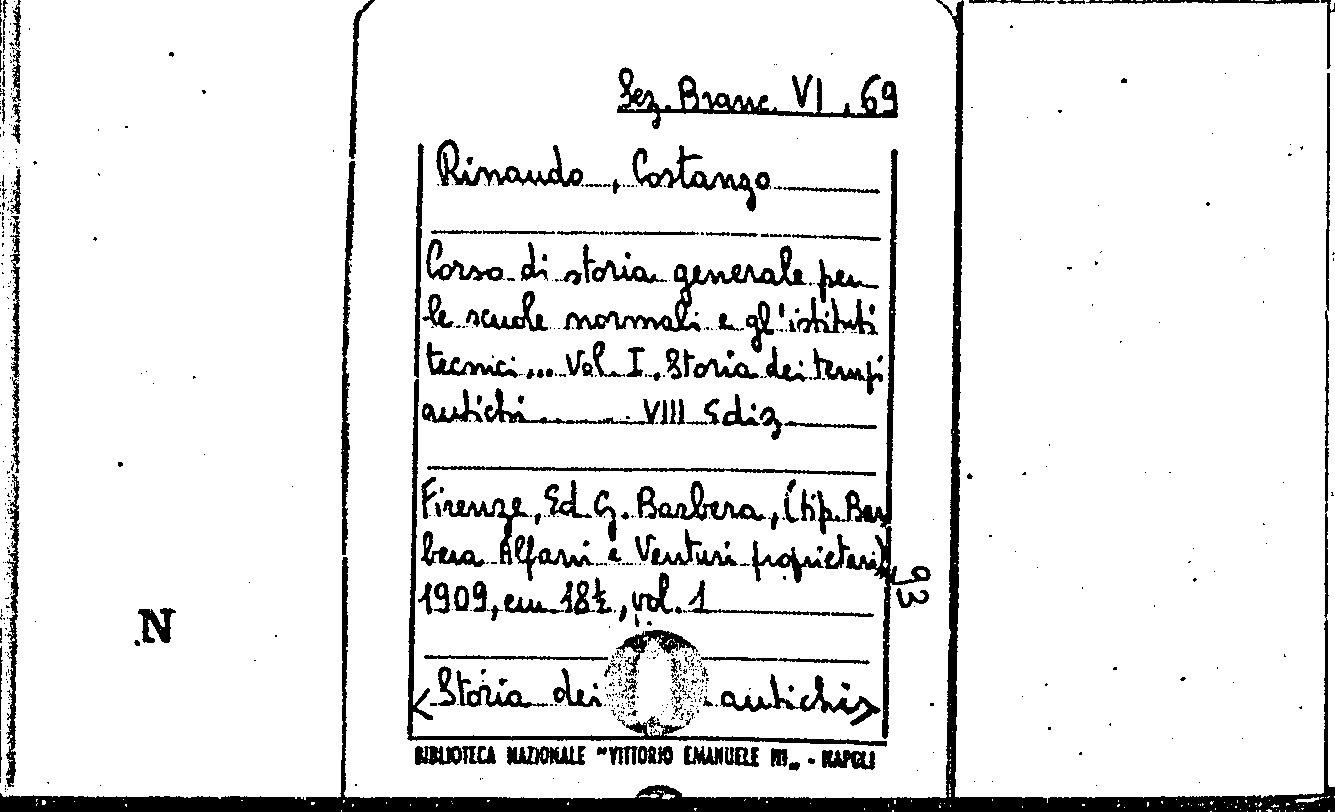 Sez. Branc. VI, 69
Rinaudo, Costanzo
Corso di storia generale per
le scuole normali e gl'istituti
tecnici... Vol. I. Storia dei tempi
antichi ... VIII Ediz.
Firenze, Ed. G. Barbera, (tip. Bar
bera Alfani e Venturi proprietari)
1909, cm. 18½, vol. 1
93
<Storia dei antichi>
BIBLIOTECA NAZIONALE "VITTORIO EMANUELE III„ - NAPOLI
N